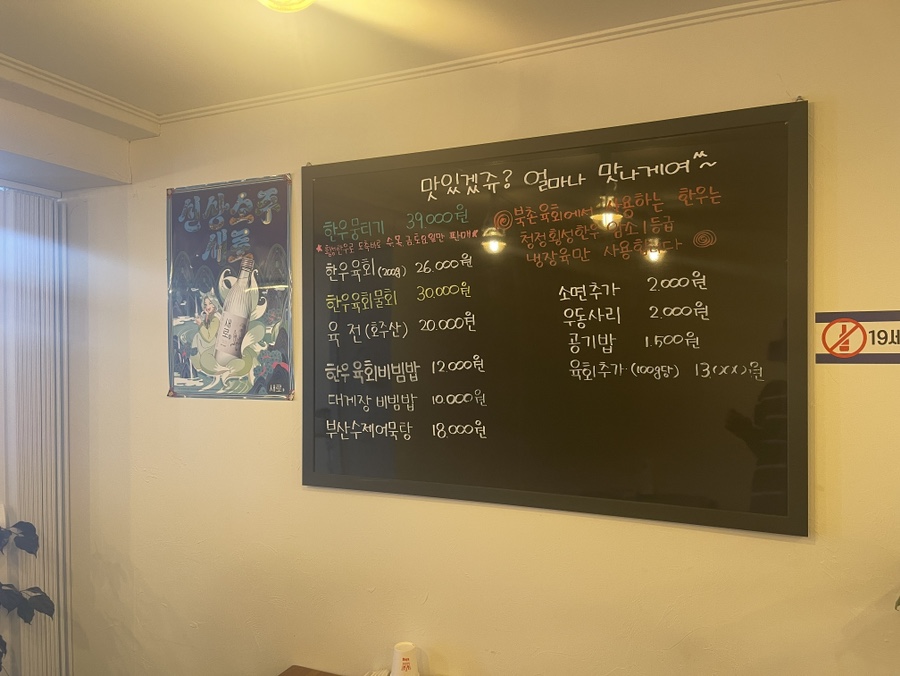 맛있겠쥬? 얼마나 맛나게여~
한우뭉티기 39,000원
도축바로 수목금토요일만 판매
한우육회(200g) 26,000원
한우육회물회 30,000원
육전(호주산) 20,000원
한우육회비빔밥 12,000원
대게장 비빔밥 10,000원
부산수제어묵탕 18,000원
북촌육회에서 사용하는 한우는
청정횡성한우 암소1등급
냉장육만 사용합니다
소면추가 2,000원
우동사리 2,000원
공기밥 1,500원
육회추가 (100g당) 13,000원
신상소주
새로
새로
새로
19세